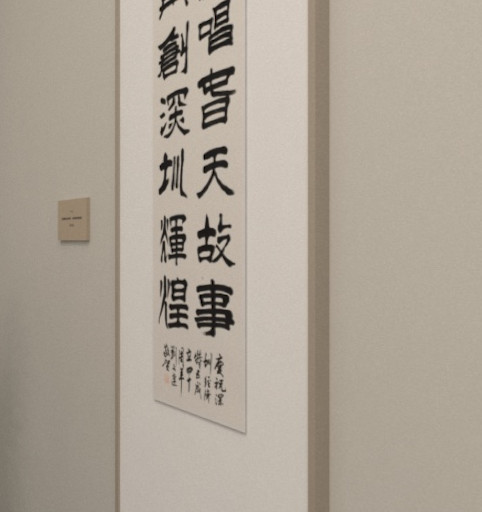 唱旾天故事
創深圳輝煌
慶祝深
圳經濟
特區成
立四十
周年